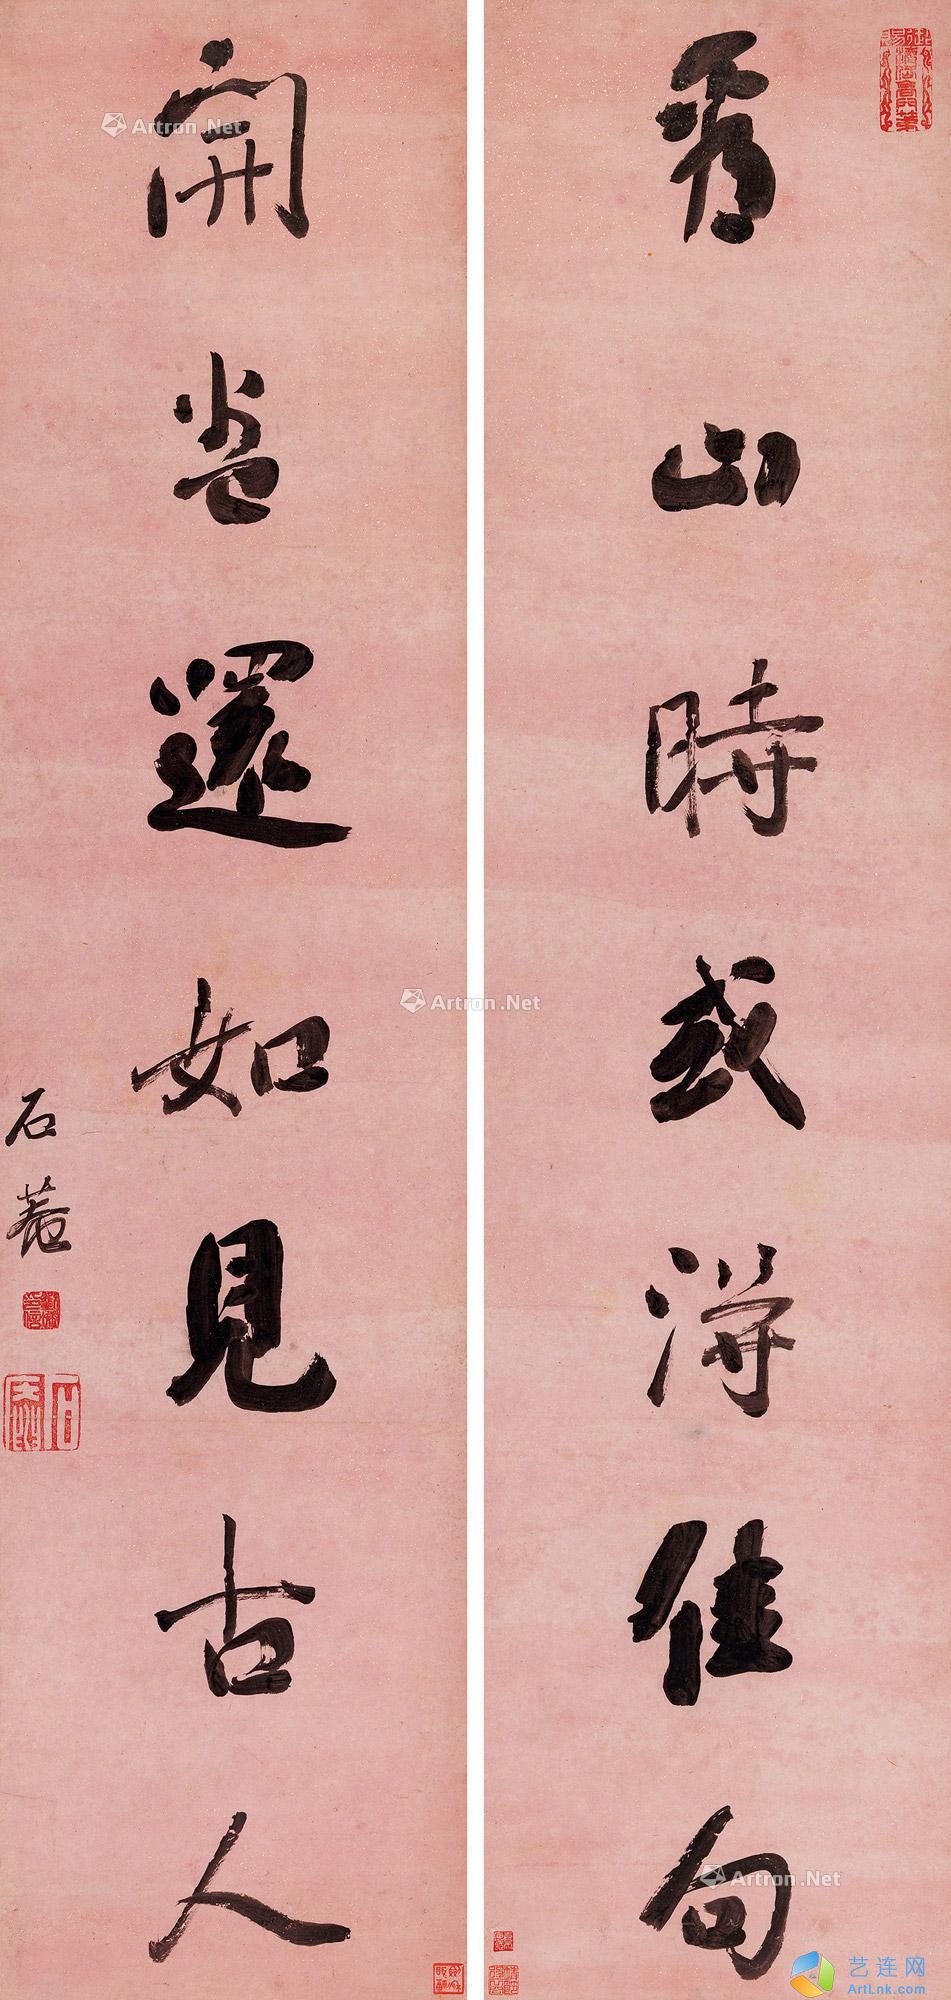 看山時或得佳句
開卷還如見古人
石菴
Artron.Net
Artron.Net
Artron.Net
艺连网
ArtLnk.com